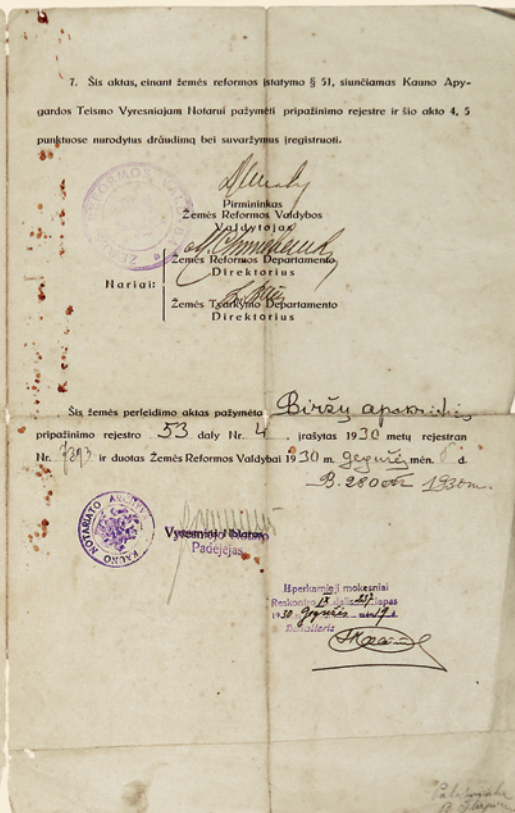 7. Šis aktas, einant žemės reformos įstatymo § 51, siunčiamas Kauno Apy-
gardos Teismo Vyresniajam Notarui pažymėti pripažinimo rejestre ir šio akto 4, 5
punktuose nurodytus draudimą bei suvaržymus įregistruoti.
ŽEMĖS REFORMOS VALDYBA
Pirmininkas
Žemės Reformos Valdybos
Valdytojas
Žemės Reformos Departamento
Direktorius
Nariai:
Žemės Tvarkymo Departamento
Direktorius
Šis žemės perleidimo aktas pažymėta Biržų apskrities
pripažinimo rejestro 53 daly Nr. 4 . įrašytas 1930 metų rejestran
Nr. ir duotas Žemės Reformos Valdybai 1930 m. gegužės mėn. d.
1930 m.
KAUNO NOTARIATO ARCHYVA
Vyresnysis Notaras
Vyresniojo Notaro
Padėjėjas
Išperkamieji mokesniai
Reskontro IX dalis 257 lapas
1930 gegužės mėn. 19 d.
Buhalteris